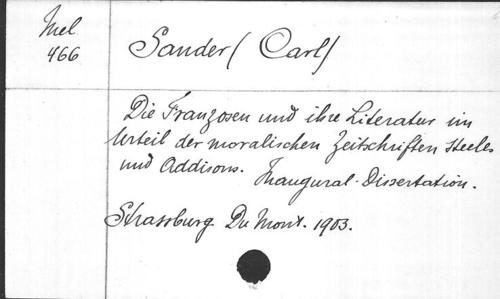 Mel
466
Sander (Carl)
Die Franzosen und ihre Literatur im
Urteil der moralischen Zeitschriften Steeles
und Addisons. Inaugural-Dissertation.
Strassburg. Du Mont. 1903.